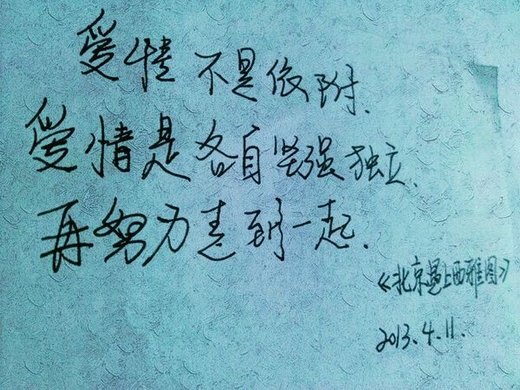 爱情不是依附.
爱情是各自坚强独立.
再努力走到一起.
《北京遇上西雅图》
2013.4.11.